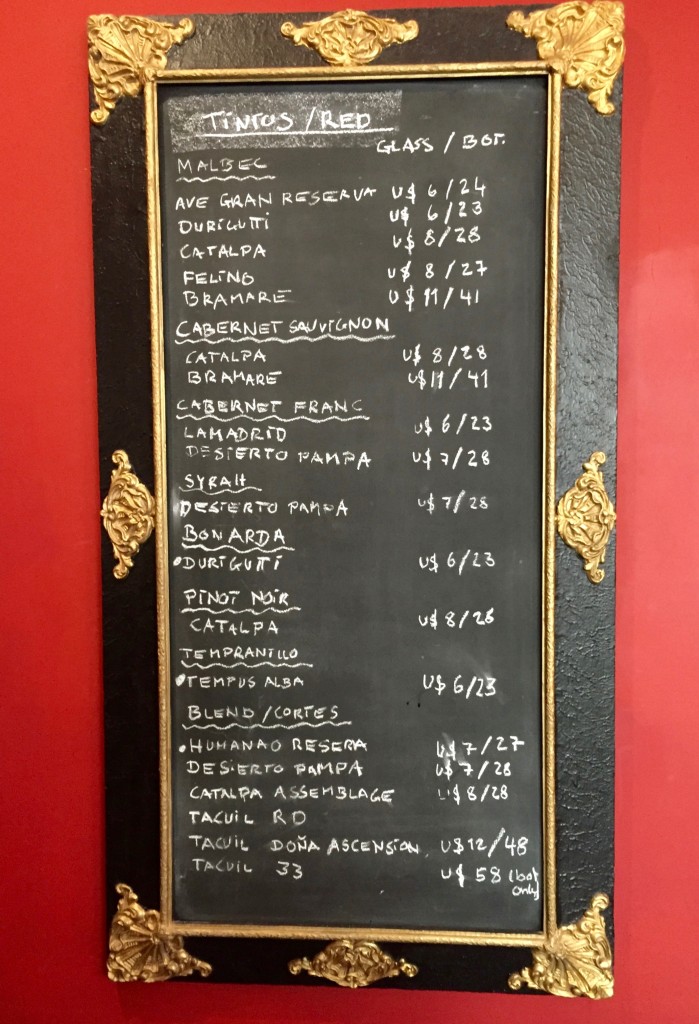 TINTOS / RED
GLASS / BOT.
MALBEC
AVE GRAN RESERVA U$ 6/24
DURIGUTTI U$ 6/23
CATALPA U$ 8/28
FELINO U$ 8/27
BRAMARE U$ 11/41
CABERNET SAUVIGNON
CATALPA U$ 8/28
BRAMARE U$ 11/41
CABERNET FRANC
LAMADRID U$ 6/23
DESIERTO PAMPA U$ 7/28
SYRAH
DESIERTO PAMPA U$ 7/28
BONARDA
•DURIGUTTI U$ 6/23
PINOT NOIR
CATALPA U$ 8/28
TEMPRANILLO
•TEMPUS ALBA U$ 6/23
BLEND/CORTES
•HUMANAO RESERA U$ 7/27
DESIERTO PAMPA U$ 7/28
CATALPA ASSEMBLAGE U$ 8/28
TACUIL RD
TACUIL DOÑA ASCENSION U$ 12/48
TACUIL 33 U$ 58 (bot
only)